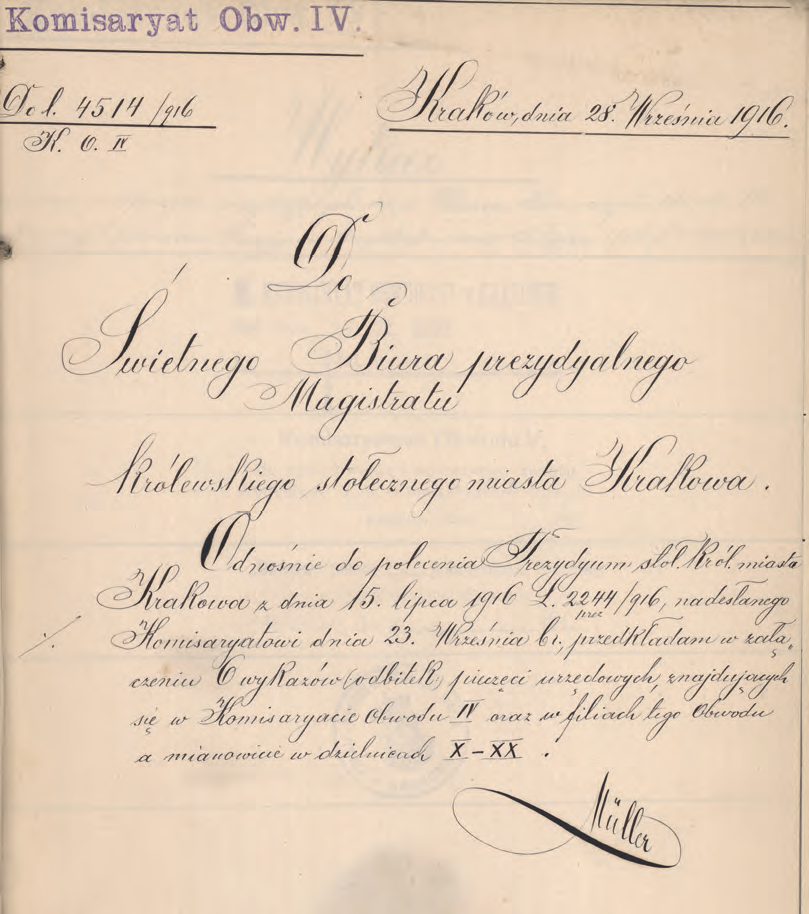 Komisaryat Obw. IV.
Do l. 4514/916
K. O. IV
Kraków, dnia 28. Września 1916.
Do
Świetnego Biura prezydyalnego
Magistratu
królewskiego stołecznego miasta Krakowa.
Odnośnie do polecenia Prezydyum stoł. król. miasta
Krakowa z dnia 15. lipca 1916 L. 2244/916, nadesłanego
prez
./. Komisaryatowi dnia 23. Września br., przedkładam w załą-
czeniu 6 wykazów (odbitek) pieczęci urzędowych, znajdujących
się w Komisaryacie Obwodu IV oraz w filiach tego Obwodu
a mianowicie w dzielnicach X-XX.
Müller